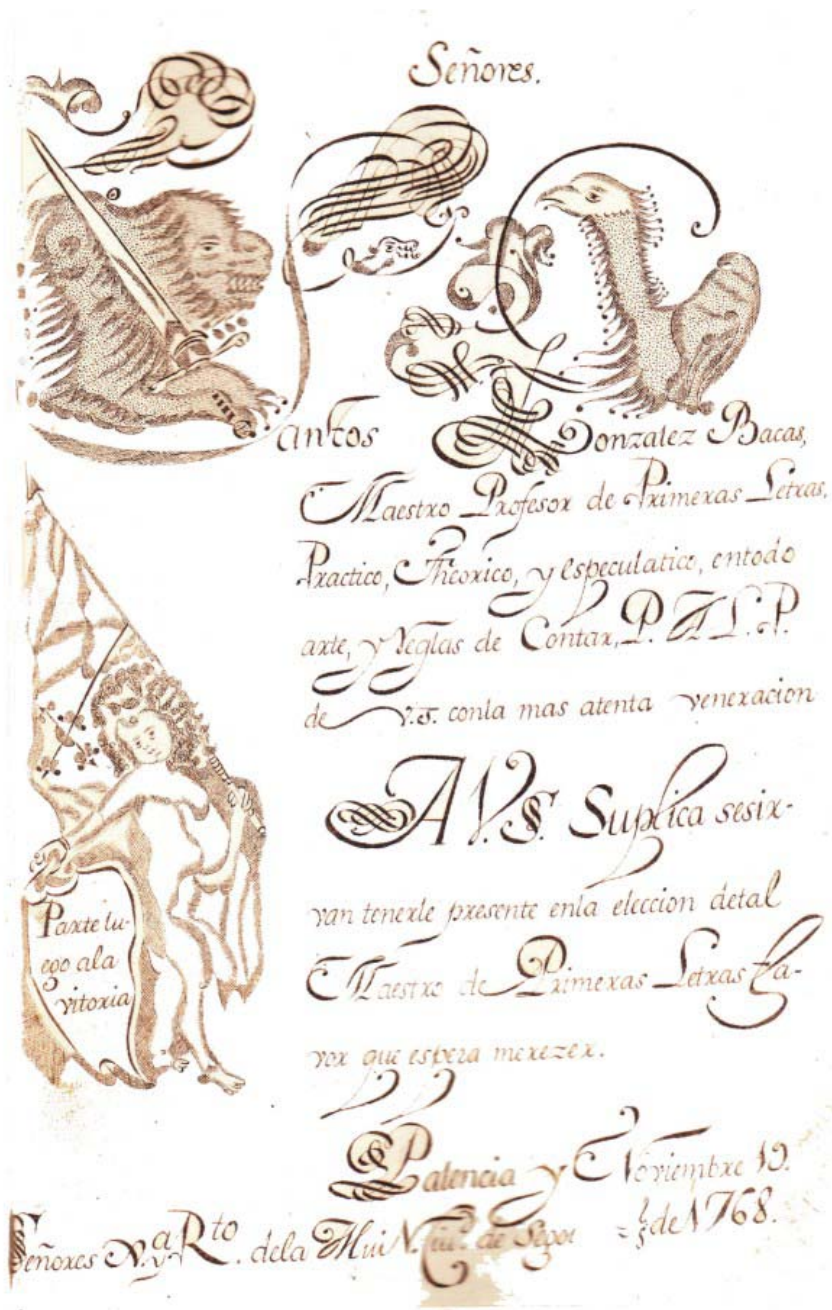 Señores.
Santos Gonzalez Bacas,
Maestro Profesor de Primeras Letras,
Practico, Theorico, y especulatico, entodo
arte, y Reglas de Contar, P. A L. P.
de V.S. conla mas atenta veneracion
A V.S. Suplica sesir-
van tenerle presente enla eleccion detal
Maestro de Primeras Letras fa-
vor que espera merezer.
Palencia y Noviembre 19.
de 1768.
Señores N. y R.to dela Mui N.
Parte lu-
ego ala
vitoria